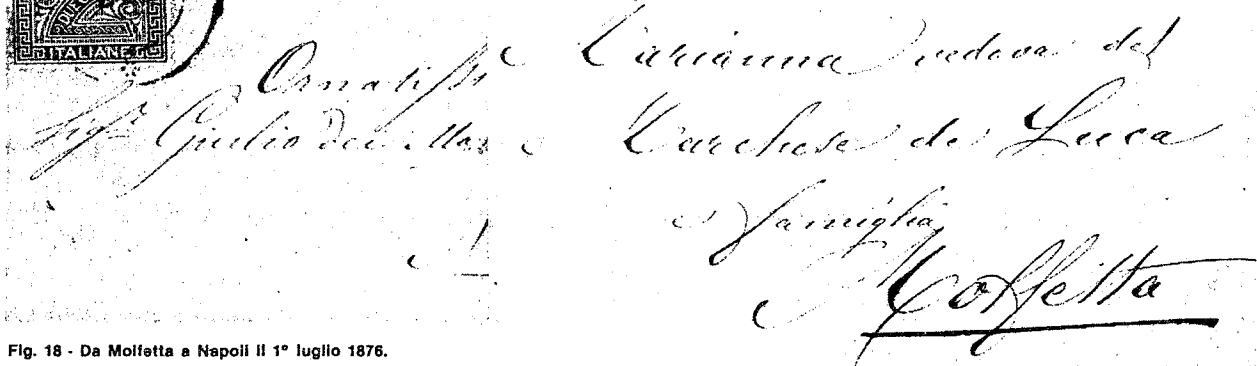 ITALIANE
Ornatiss
Sigr. Giulio dei Mar
Marianna vedova del
Marchese de Luca
e famiglia
Molfetta
Fig. 18 - Da Molfetta a Napoli il 1° luglio 1876.